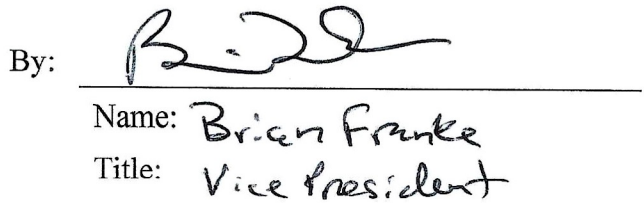 By:
Name: Brian Franke
Title: Vice President